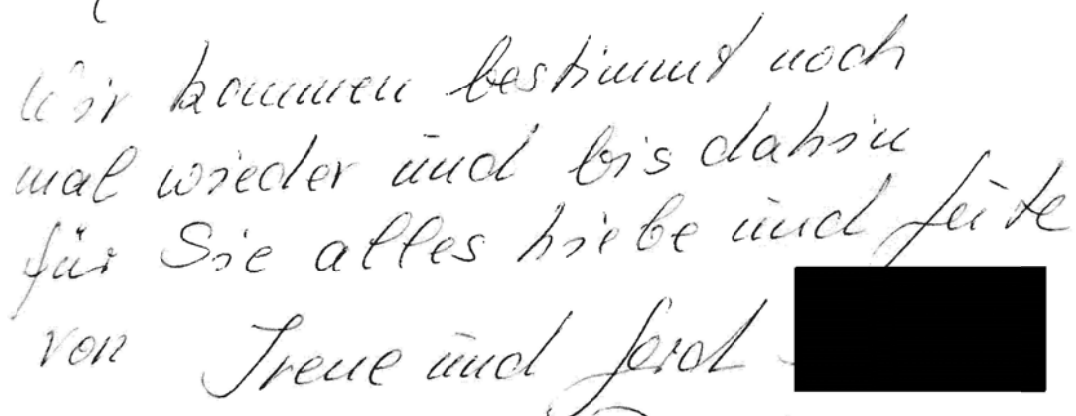 Wir kommen bestimmt noch
mal wieder und bis dahin
für Sie alles Liebe und Gute
von Irene und Gerd